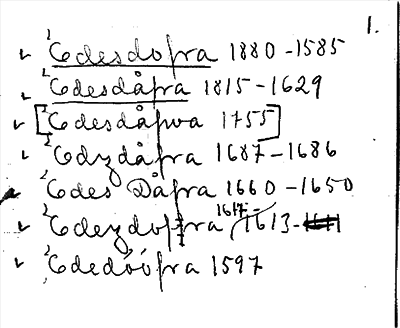 1.
Edesdofra 1880-1585
Edesdåfra 1815-1629
[Edesdåfwa 1755]
Edzdåfra 1687-1686
Edes Dåfra 1660-1650
Edezdoffra 1617- 1613-
Ededóófra 1597